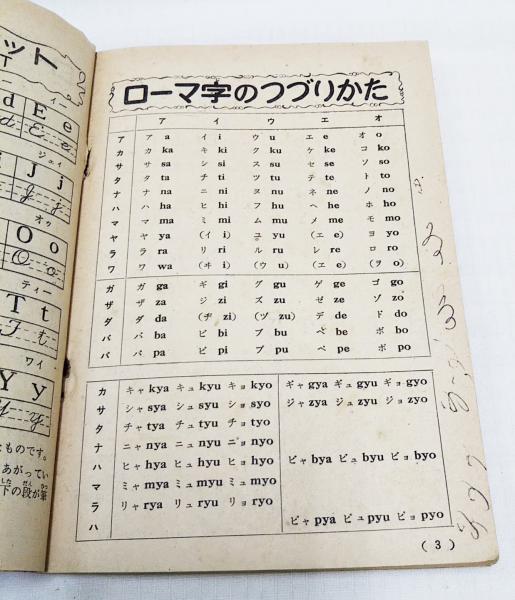 ット
イー
d E e
ジェイ
j j
オゥ
O o
ティー
T t
ワイ
Y y
ものです。
あがってい
下の段が筆
ローマ字のつづりかた
ア イ ウ エ オ
ア ア a イ i ウ u エ e オ o
カ カ ka キ ki ク ku ケ ke コ ko
サ サ sa シ si ス su セ se ソ so
タ タ ta チ ti ツ tu テ te ト to
ナ ナ na ニ ni ヌ nu ネ ne ノ no
ハ ハ ha ヒ hi フ hu ヘ he ホ ho
マ マ ma ミ mi ム mu メ me モ mo
ヤ ヤ ya (イ i) ユ yu (エ e) ヨ yo
ラ ラ ra リ ri ル ru レ re ロ ro
ワ ワ wa (ヰ i) (ウ u) (ヱ e) (ヲ o)
ガ ガ ga ギ gi グ gu ゲ ge ゴ go
ザ ザ za ジ zi ズ zu ゼ ze ゾ zo
ダ ダ da (ヂ zi) (ヅ zu) デ de ド do
バ バ ba ビ bi ブ bu ベ be ボ bo
パ パ pa ピ pi プ pu ペ pe ポ po
カ キャ kya キュ kyu キョ kyo ギャ gya ギュ gyu ギョ gyo
サ シャ sya シュ syu ショ syo ジャ zya ジュ zyu ジョ zyo
タ チャ tya チュ tyu チョ tyo
ナ ニャ nya ニュ nyu ニョ nyo
ハ ヒャ hya ヒュ hyu ヒョ hyo ビャ bya ビュ byu ビョ byo
マ ミャ mya ミュ myu ミュ myo
ラ リャ rya リュ ryu リョ ryo
ハ ピャ pya ピュ pyu ピョ pyo
(3)